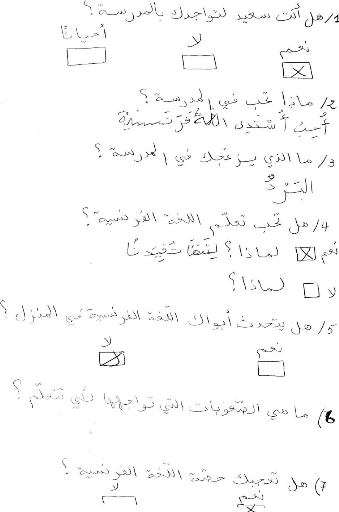 1/ هل أنت سعيد لتواجدك بالمدرسة ؟
نعم لا أحيانا
2/ ماذا تحب في المدرسة ؟
أحب اللغة
3/ ما الذي يزعجك في المدرسة ؟
البَرْدُ
4/ هل تحب تعلّم اللغة الفرنسية ؟
نعم لماذا ؟
لا لماذا ؟
5/ هل يتحدث أبواك اللّغة الفرنسية في المنزل ؟
نعم لا
6) ما هي الصّعوبات التي تواجهها لكي تتعلّم ؟
7) هل تعجبك حصّة اللّغة الفرنسية ؟
نعم لا